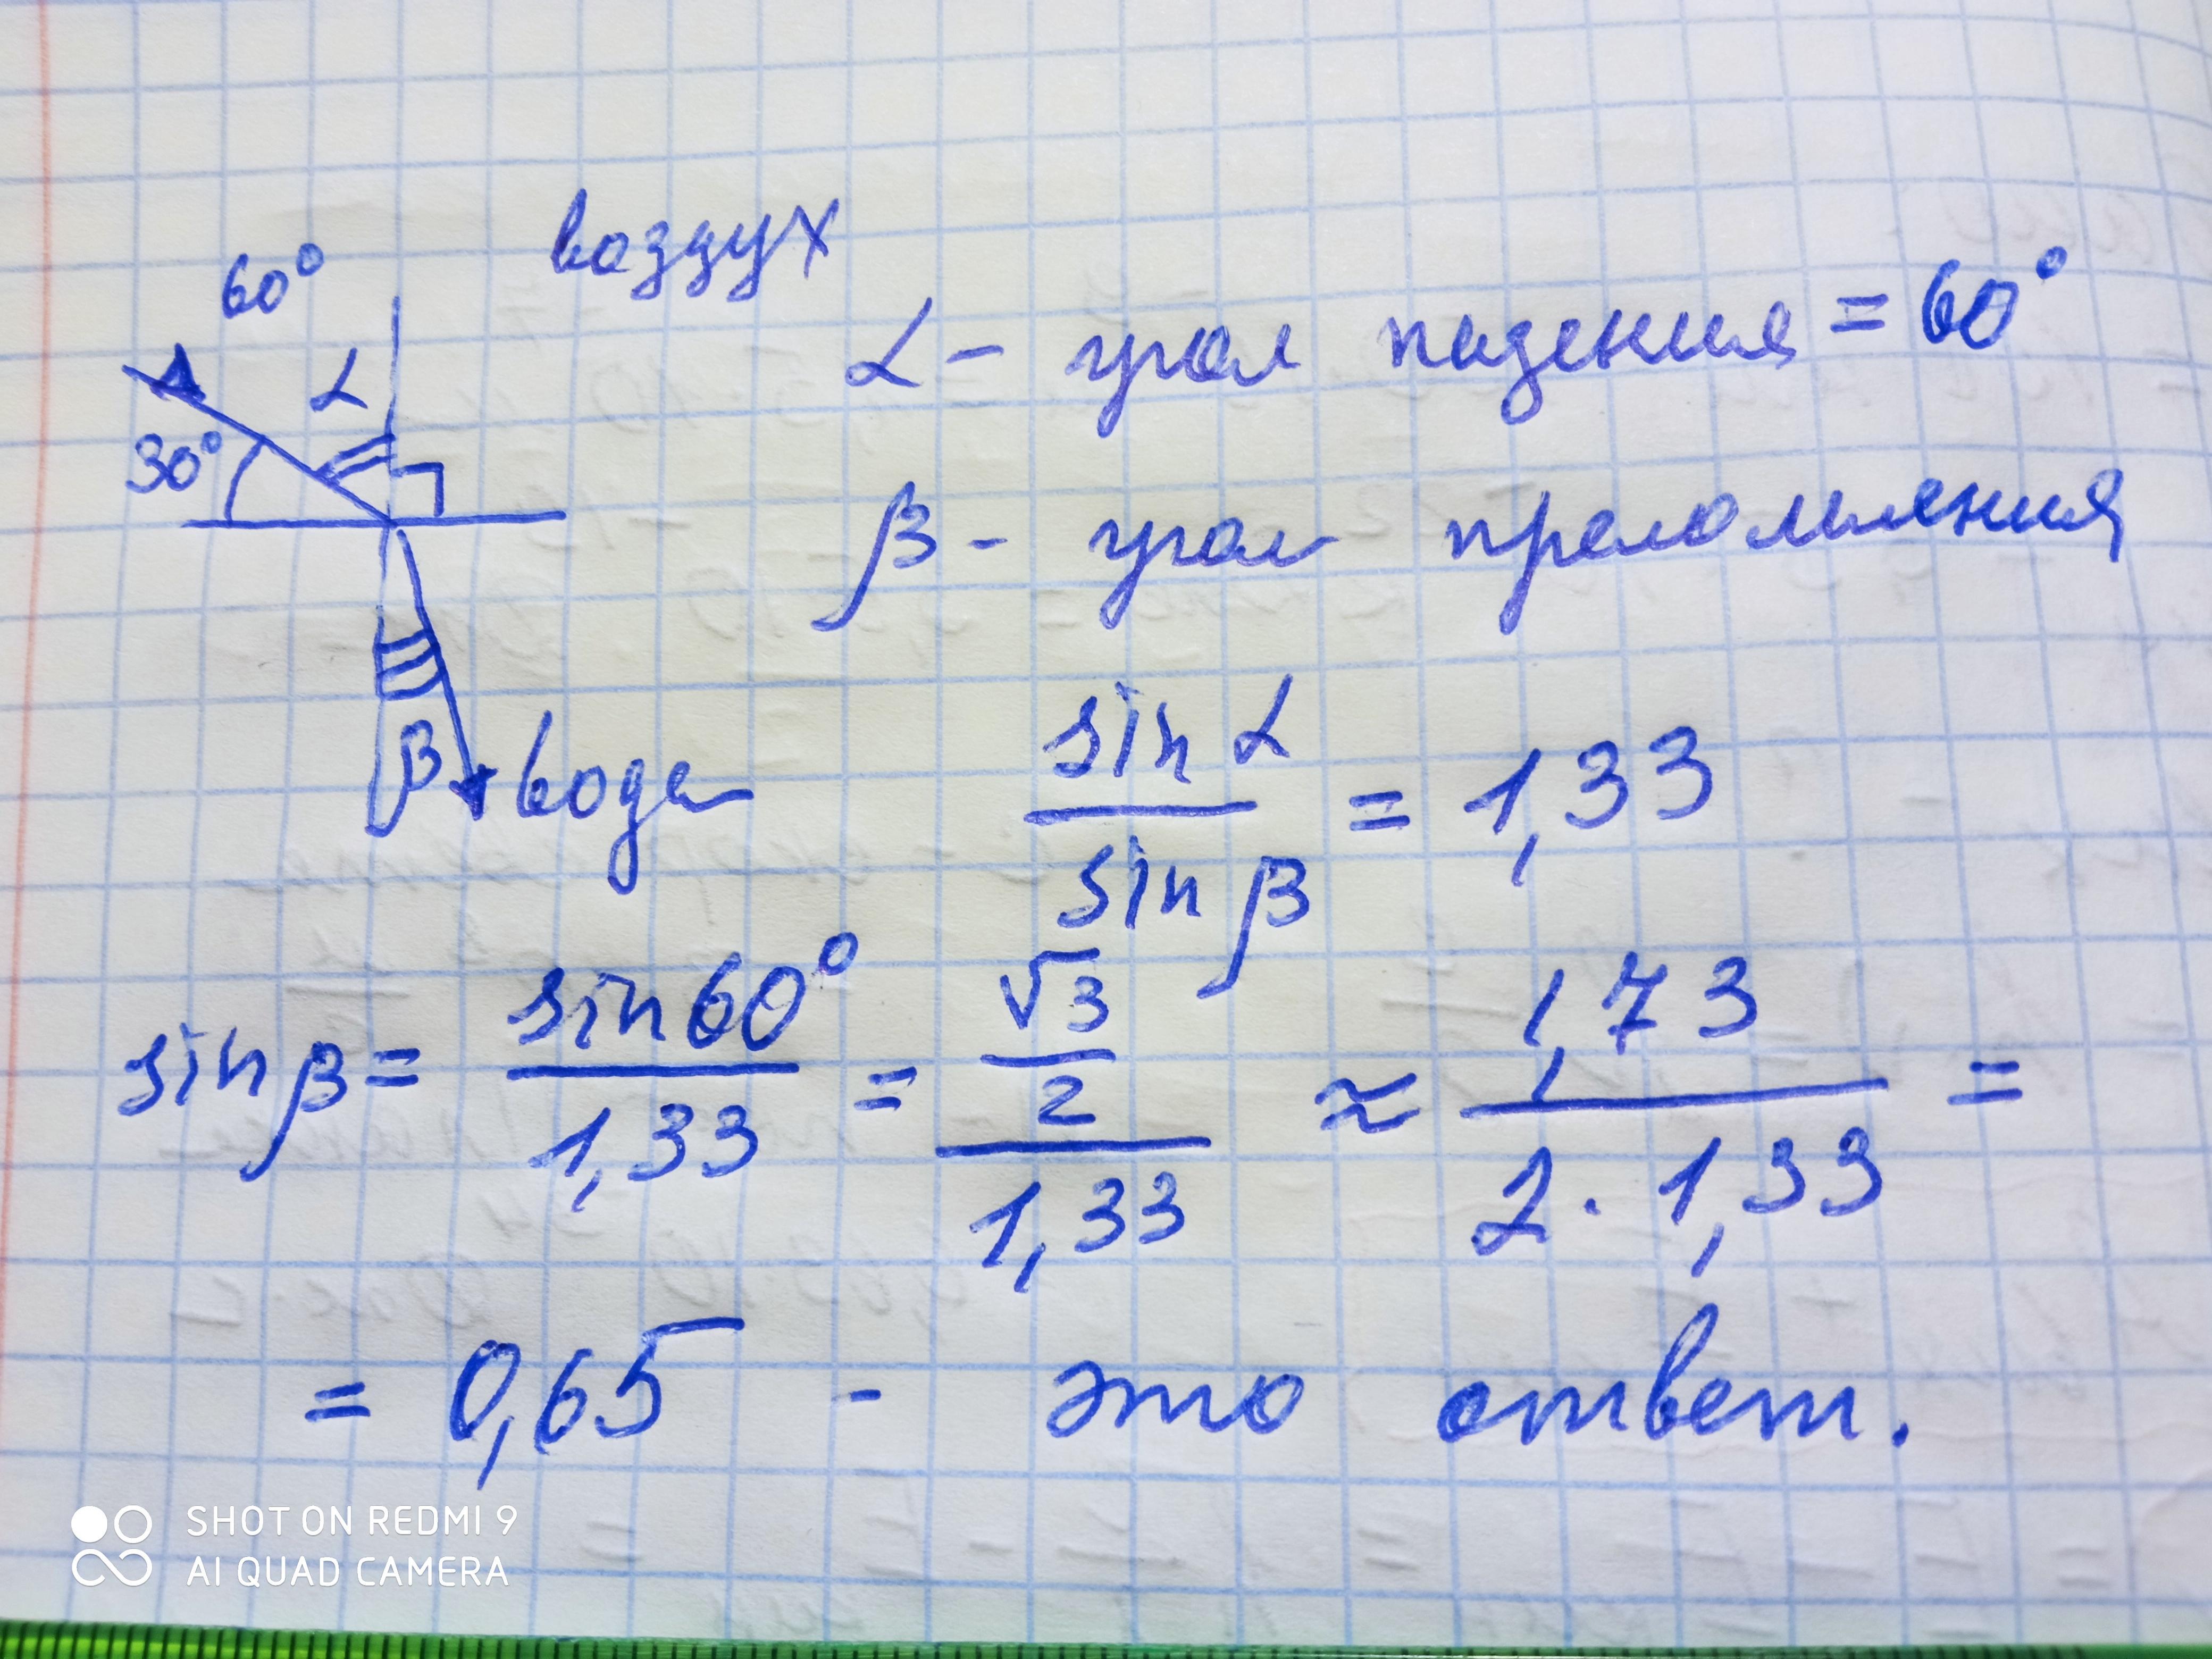 воздух
60°
α
30°
α - угол падения = 60°
β - угол преломления
β вода
sin α / sin β = 1,33
sin β = sin 60° / 1,33 = √3/2 / 1,33 ≈ 1,73 / 2 · 1,33 =
= 0,65 - это ответ.
SHOT ON REDMI 9
AI QUAD CAMERA